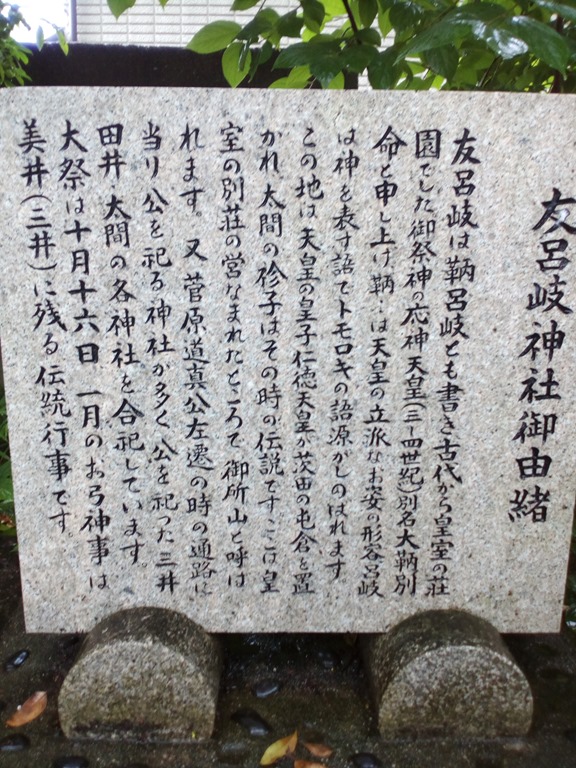 友呂岐神社御由緒
友呂岐は鞆呂岐とも書き古代から皇室の荘
園でした御祭神の応神天皇(三〜四世紀)別名大鞆別
命と申し上げ鞆…は天皇の立派なお姿の形容呂岐
は神を表す語でトモロキの語源がしのばれます
この地は天皇の皇子仁徳天皇が茨田の屯倉を置
かれ太間の衫子はその時の伝説ですここは皇
室の別荘の営なまれたところで御所山と呼ば
れます。又菅原道真公左遷の時の通路に
当り公を祀る神社が多く公を祀った三井
田井・太間の各神社を合祀しています。
大祭は十月十六日一月のお弓神事は
美井(三井)に残る伝統行事です。